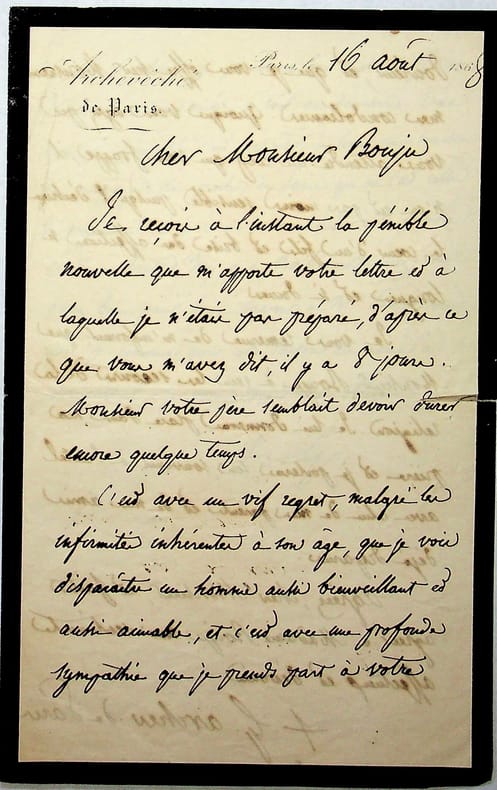 Archevêché
de Paris.
Paris, le 16 août 1868
Cher Monsieur Bouju
Je reçois à l'instant la pénible
nouvelle que m'apporte votre lettre et à
laquelle je n'étais pas préparé, d'après ce
que vous m'avez dit, il y a 8 jours.
Monsieur votre père semblait devoir durer
encore quelque temps.
C'est avec un vif regret, malgré les
infirmités inhérentes à son âge, que je vois
disparaître un homme aussi bienveillant et
aussi aimable, et c'est avec une profonde
sympathie que je prends part à votre